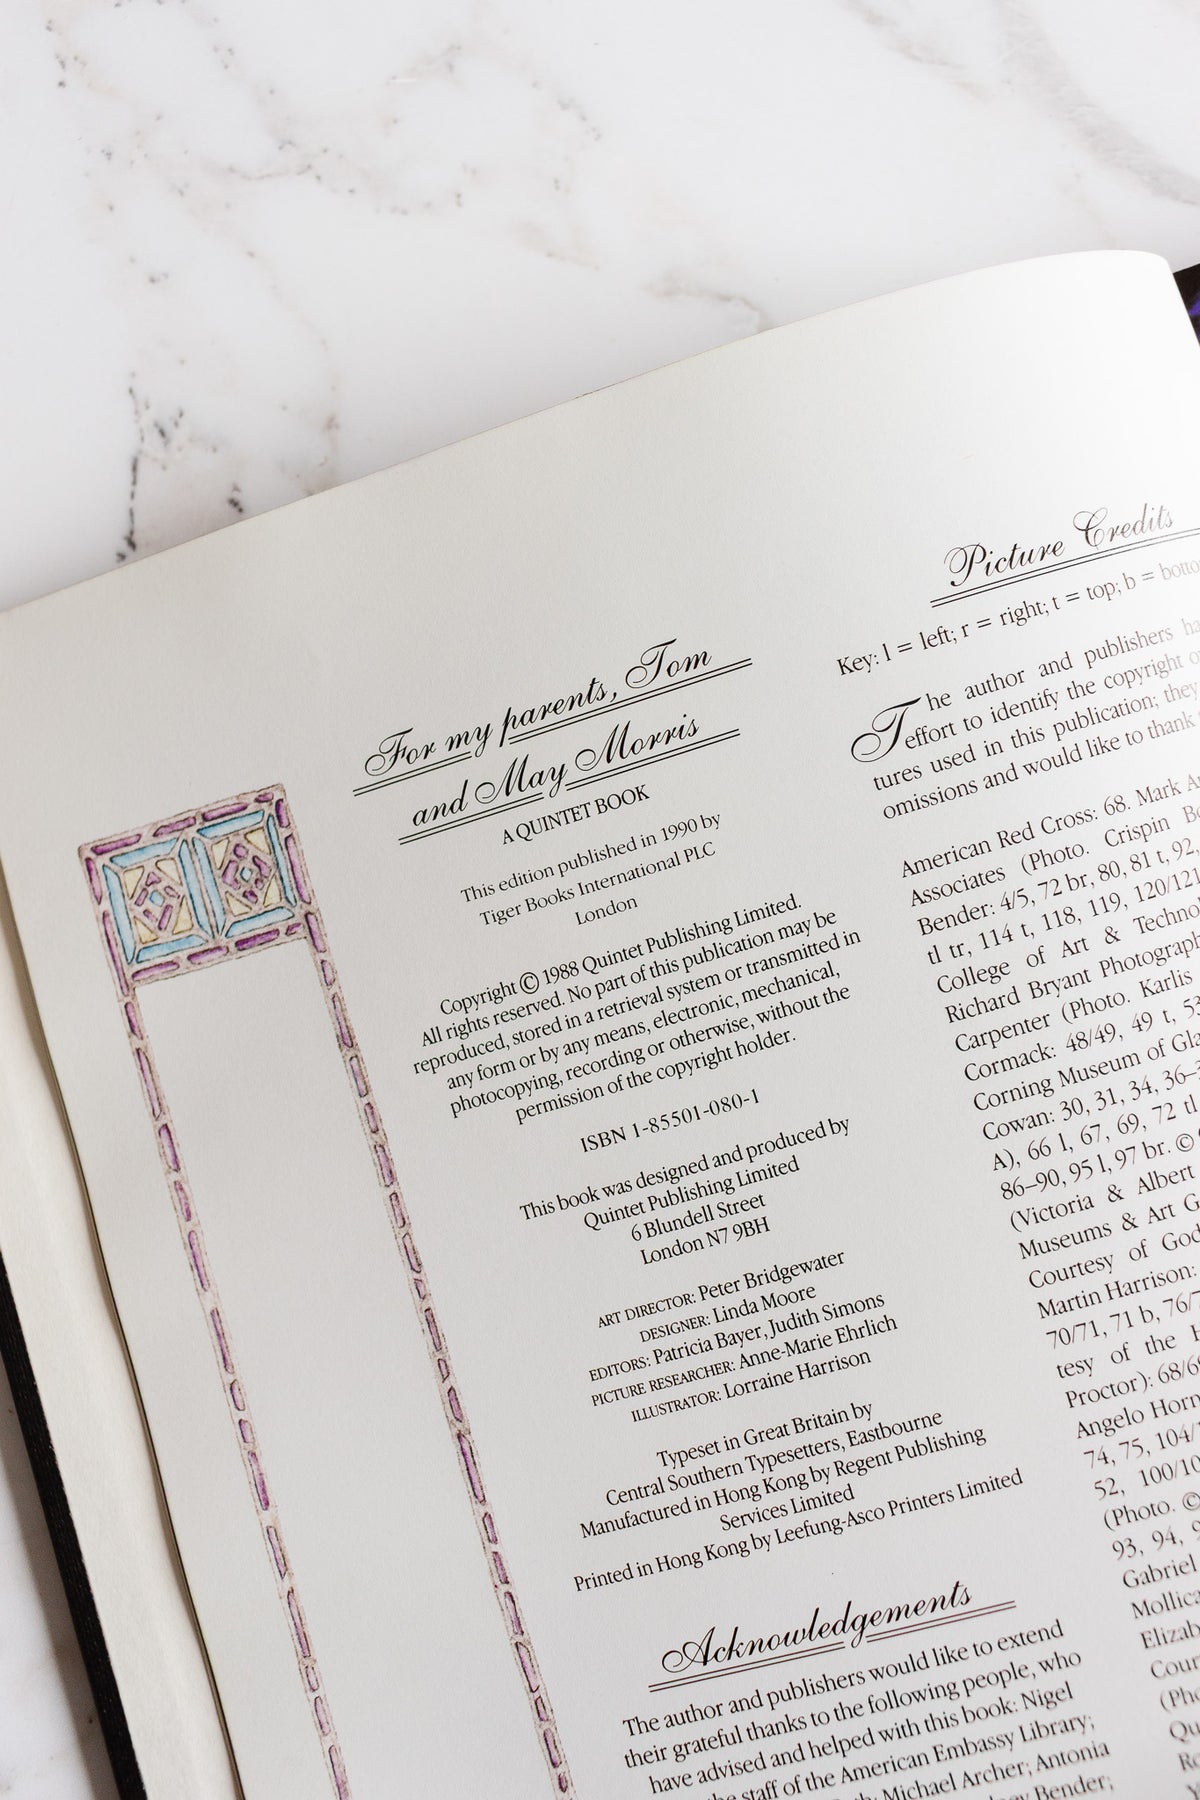 For my parents, Tom
and May Morris
A QUINTET BOOK
This edition published in 1990 by
Tiger Books International PLC
London
Copyright © 1988 Quintet Publishing Limited.
All rights reserved. No part of this publication may be
reproduced, stored in a retrieval system or transmitted in
any form or by any means, electronic, mechanical,
photocopying, recording or otherwise, without the
permission of the copyright holder.
ISBN 1-85501-080-1
This book was designed and produced by
Quintet Publishing Limited
6 Blundell Street
London N7 9BH
ART DIRECTOR: Peter Bridgewater
DESIGNER: Linda Moore
EDITORS: Patricia Bayer, Judith Simons
PICTURE RESEARCHER: Anne-Marie Ehrlich
ILLUSTRATOR: Lorraine Harrison
Typeset in Great Britain by
Central Southern Typesetters, Eastbourne
Manufactured in Hong Kong by Regent Publishing
Services Limited
Printed in Hong Kong by Leefung-Asco Printers Limited
Acknowledgements
The author and publishers would like to extend
their grateful thanks to the following people, who
have advised and helped with this book: Nigel
the staff of the American Embassy Library;
Michael Archer; Antonia
Bender;
Picture Credits
Key: l = left; r = right; t = top; b =
The author and publishers
effort to identify the copyright
tures used in this publication; they
omissions and would like to thank
American Red Cross: 68. Mark
Associates (Photo. Crispin
Bender: 4/5, 72 br, 80, 81 t, 92,
tl tr, 114 t, 118, 119, 120/121
College of Art &
Richard Bryant
Carpenter (Photo. Karlis
Cormack: 48/49, 49 t,
Corning Museum of
Cowan: 30, 31, 34,
A), 66 l, 67, 69, 72 tl
86–90, 95 l, 97 br. ©
(Victoria & Albert
Museums & Art
Courtesy of
Martin Harrison:
70/71, 71 b,
of the
Proctor):
Angelo
74, 75,
52,
(Photo. ©
93, 94,
Gabriel